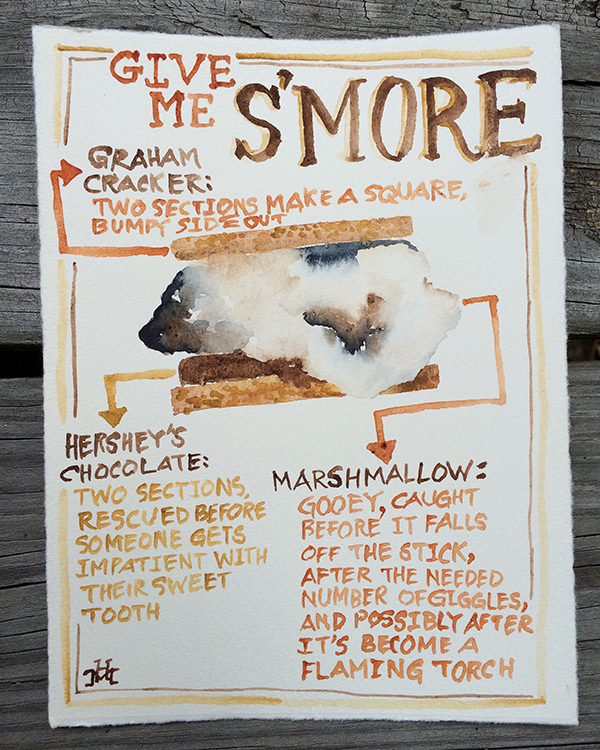 GIVE
ME
S'MORE
GRAHAM
CRACKER:
TWO SECTIONS MAKE A SQUARE,
BUMPY SIDE OUT
HERSHEY'S
CHOCOLATE:
TWO SECTIONS,
RESCUED BEFORE
SOMEONE GETS
IMPATIENT WITH
THEIR SWEET
TOOTH
MARSHMALLOW:
GOOEY, CAUGHT
BEFORE IT FALLS
OFF THE STICK,
AFTER THE NEEDED
NUMBER OF GIGGLES,
AND POSSIBLY AFTER
IT'S BECOME A
FLAMING TORCH